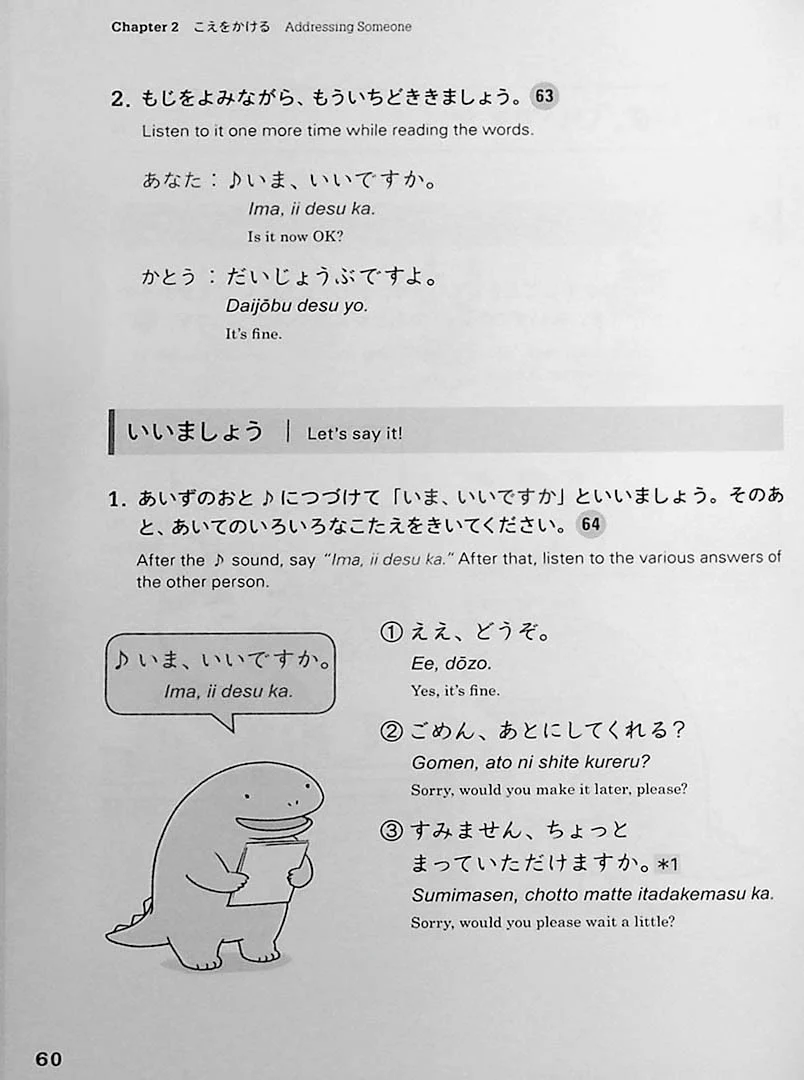 Chapter 2 こえをかける Addressing Someone
2. もじをよみながら、もういちどききましょう。 63
Listen to it one more time while reading the words.
あなた：♪いま、いいですか。
Ima, ii desu ka.
Is it now OK?
かとう：だいじょうぶですよ。
Daijōbu desu yo.
It's fine.
いいましょう | Let's say it!
1. あいずのおと♪につづけて「いま、いいですか」といいましょう。そのあ
と、あいてのいろいろなこたえをきいてください。 64
After the ♪ sound, say "Ima, ii desu ka." After that, listen to the various answers of
the other person.
♪いま、いいですか。
Ima, ii desu ka.
①ええ、どうぞ。
Ee, dōzo.
Yes, it's fine.
②ごめん、あとにしてくれる？
Gomen, ato ni shite kureru?
Sorry, would you make it later, please?
③すみません、ちょっと
まっていただけますか。*1
Sumimasen, chotto matte itadakemasu ka.
Sorry, would you please wait a little?
60